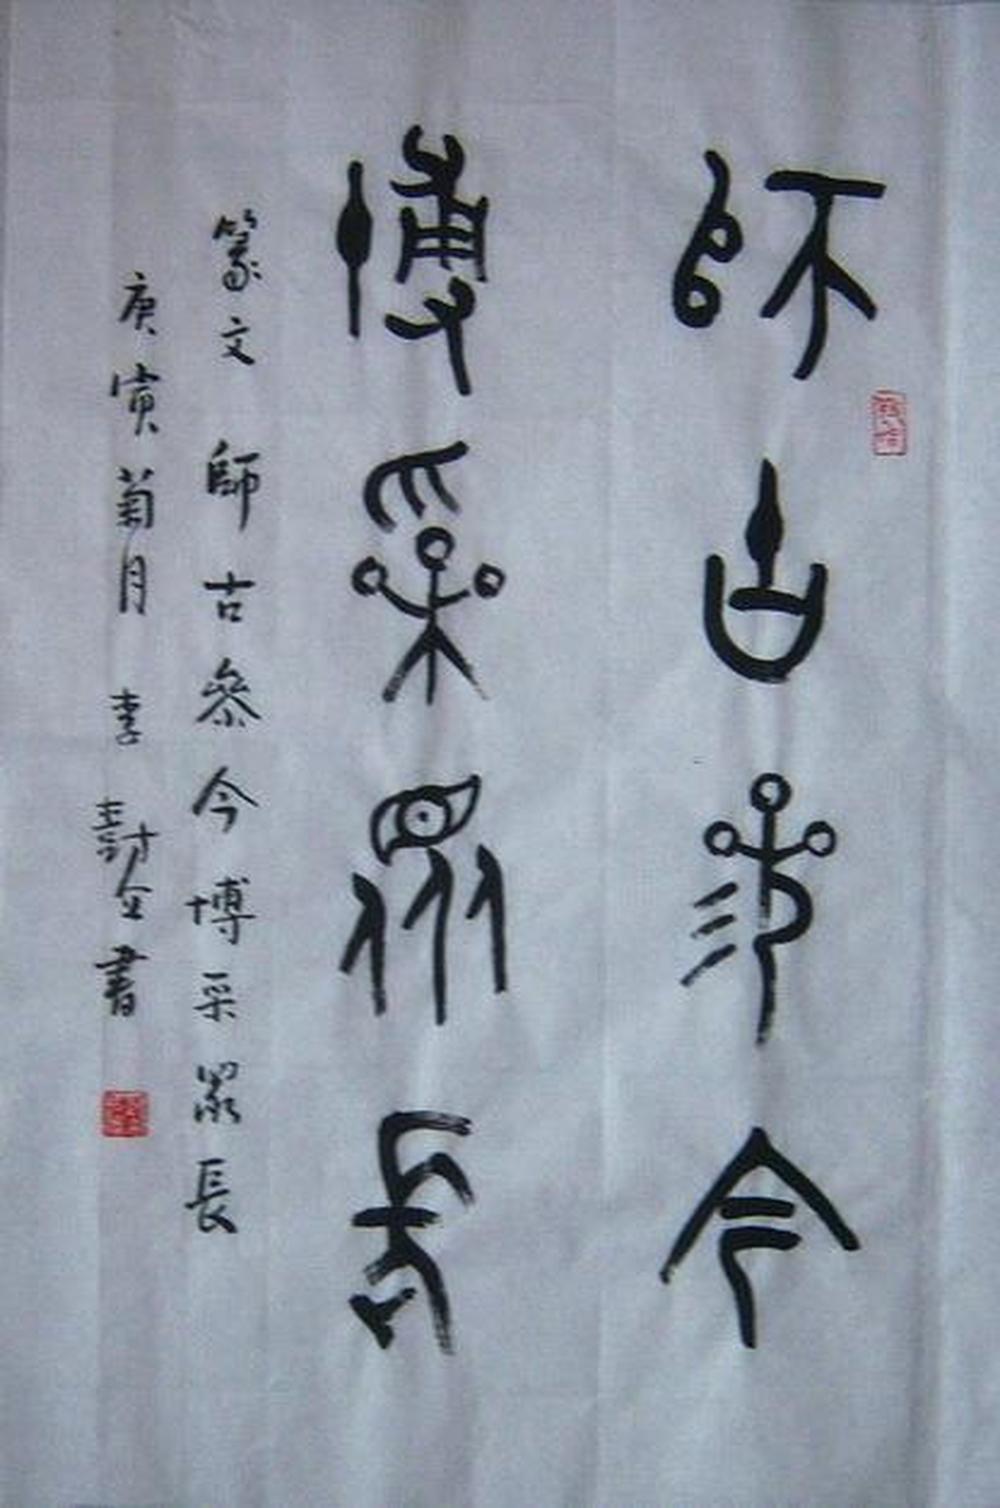 師古參今
博采眾長
篆文 師古參今博采眾長
庚寅菊月 李壽全書